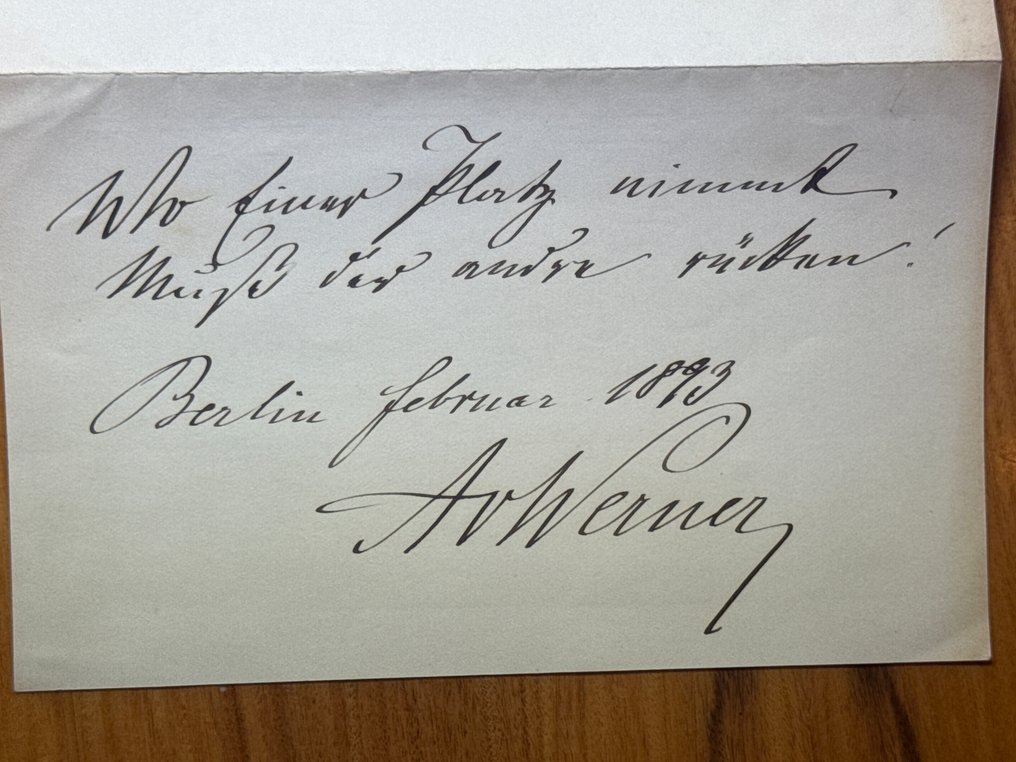 Wo Einer Platz nimmt
Muß der andre rücken!
Berlin februar 1893
AvWerner